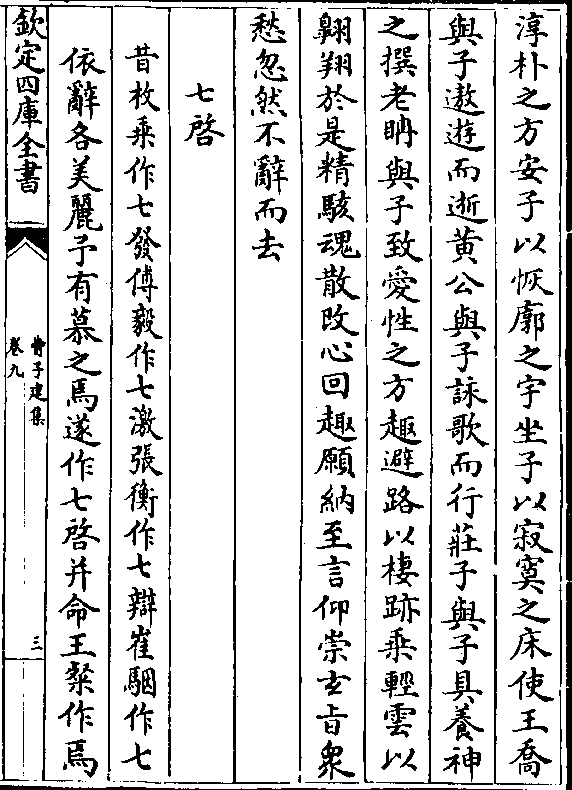 淳朴之方安子以恢廓之宇坐子以寂寞之床使王喬
與子遨遊而逝黄公與子詠歌而行莊子與子具養神
之撰老聃與子致愛性之方趣避路以棲跡乗輕雲以
翺翔於是精駭魂散改心回趣願納至言仰崇𤣥㫖衆
愁忽然不辭而去
七啓
昔枚乗作七發傅毅作七激張衡作七辯崔駰作七
依辭各美麗予有慕之焉遂作七啓并命王粲作焉
欽定四庫全書
曹子建集
卷九
三